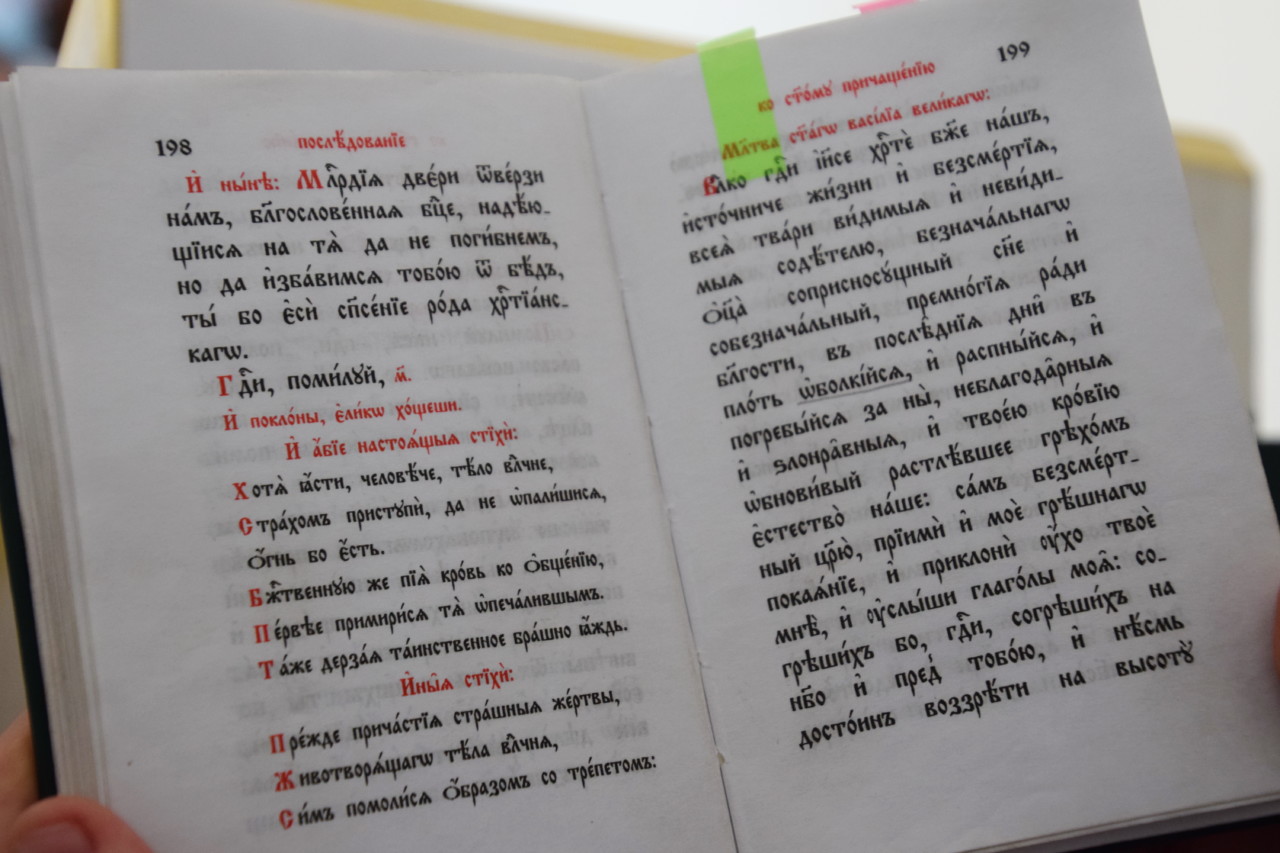 198
послѣ́дованїе
И҆ ны́нѣ: Млⷭ҇рдїѧ две́ри ѿве́рзи
на́мъ, бл҃гослове́ннаѧ бц҃е, надѣ́ю_
щїисѧ на тѧ̀ да не поги́бнемъ,
но да и҆зба́вимсѧ тобо́ю ѿ бѣ́дъ,
ты́ бо є҆сѝ сп҃се́нїе ро́да хрⷭ҇тїа́нс_
кагѡ.
Гдⷭ҇и, поми́лꙋй, м҃.
И҆ покло́ны, є҆ли́кѡ хо́щеши.
И҆ а҆́бїе настоѧ́щыѧ стїхѝ:
Хотѧ̀ ꙗ҆́сти, человѣ́че, тѣ́ло влⷣчне,
Стра́хомъ пристꙋпѝ, да не ѡ҆пали́шисѧ,
Ѻ҆́гнь бо є҆́сть.
Бжⷭ҇твеннꙋю же пїѧ̀ кро́вь ко ѻ҆бще́нїю,
Пе́рвѣе примири́сѧ тѧ̀ ѡ҆печа́лившымъ.
Та́же дерза́ѧ та́инственное бра́шно ꙗ҆́ждь.
И҆ны̑ѧ стїхѝ:
Пре́жде прича́стїѧ стра́шныѧ же́ртвы,
Животворѧ́щагѡ тѣ́ла влⷣчнѧ,
Си́мъ помоли́сѧ ѻ҆́бразомъ со тре́петомъ:
199
ко ст҃о́мꙋ причаще́нїю
Мл҃тва ст҃а́гѡ васі́лїа вели́кагѡ:
Влⷣко гдⷭ҇и і҆и҃се хрⷭ҇тѐ бж҃е на́шъ,
и҆сто́чниче жи́зни и҆ безсме́ртїѧ,
всеѧ̀ тва́ри ви́димыѧ и҆ неви́ди_
мыѧ содѣ́телю, безнача́льнагѡ
Ѻ҆ц҃а̀ соприсносꙋ́щный сн҃е и҆
собезнача́льный, премно́гїѧ ра́ди
бл҃гости, въ послѣ́днїѧ дни̑ въ
пло́ть ѡ҆болкі́йсѧ, и҆ распны́йсѧ, и҆
погребы́йсѧ за ны̀, неблагода̑рныѧ
и҆ ѕлонра̑вныѧ, и҆ твое́ю кро́вїю
ѡ҆бнови́вый растлѣ́вшее грѣхо́мъ
є҆стество̀ на́ше: са́мъ безсме́рт_
ный цр҃ю̀, прїимѝ и҆ моѐ грѣ́шнагѡ
покаѧ́нїе, и҆ приклонѝ ᲂу҆́хо твоѐ
мнѣ̀, и҆ ᲂу҆слы́ши глаго́лы моѧ̑: со_
грѣши́хъ бо, гдⷭ҇и, согрѣши́хъ на
нб҃о и҆ преⷣ тобо́ю, и҆ нѣ́смь
досто́инъ воззрѣ́ти на высотꙋ̀